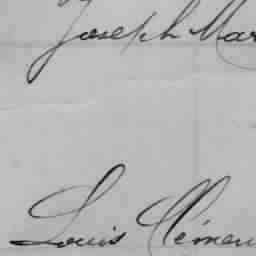 Joseph Mar
Louis Clémen